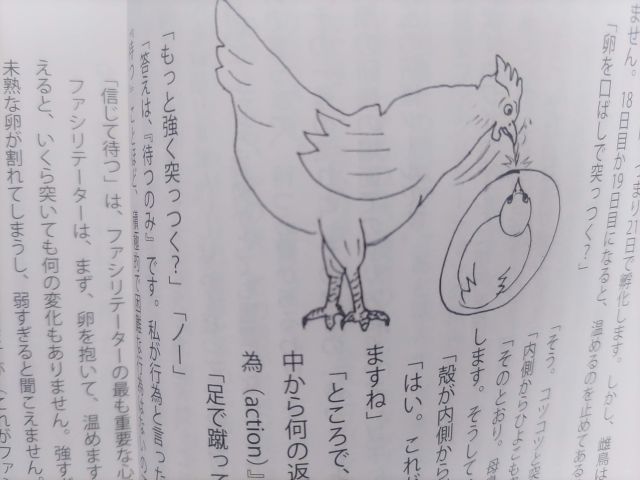 ません。18日目か19日目になると、温めるのを止めてある
つまり21日で孵化します。しかし、雌鳥は
「卵を口ばしで突っつく？」
「そう。コツコツと突
「内側からひよこも
「そのとおり。母
します。そうして
「殻が内側から
「はい。これ
ますね」
「ところで、
中から何の返
為（action）』
「足で蹴って
「もっと強く突っつく？」「ノー」
「答えは、『待つのみ』です。私が行為と言った
「信じて待つ」は、ファシリテーターの最も重要な心
ファシリテーターは、まず、卵を抱いて、温めます
えると、いくら突いても何の変化もありません。強す
未熟な卵が割れてしまうし、弱すぎると聞こえません。